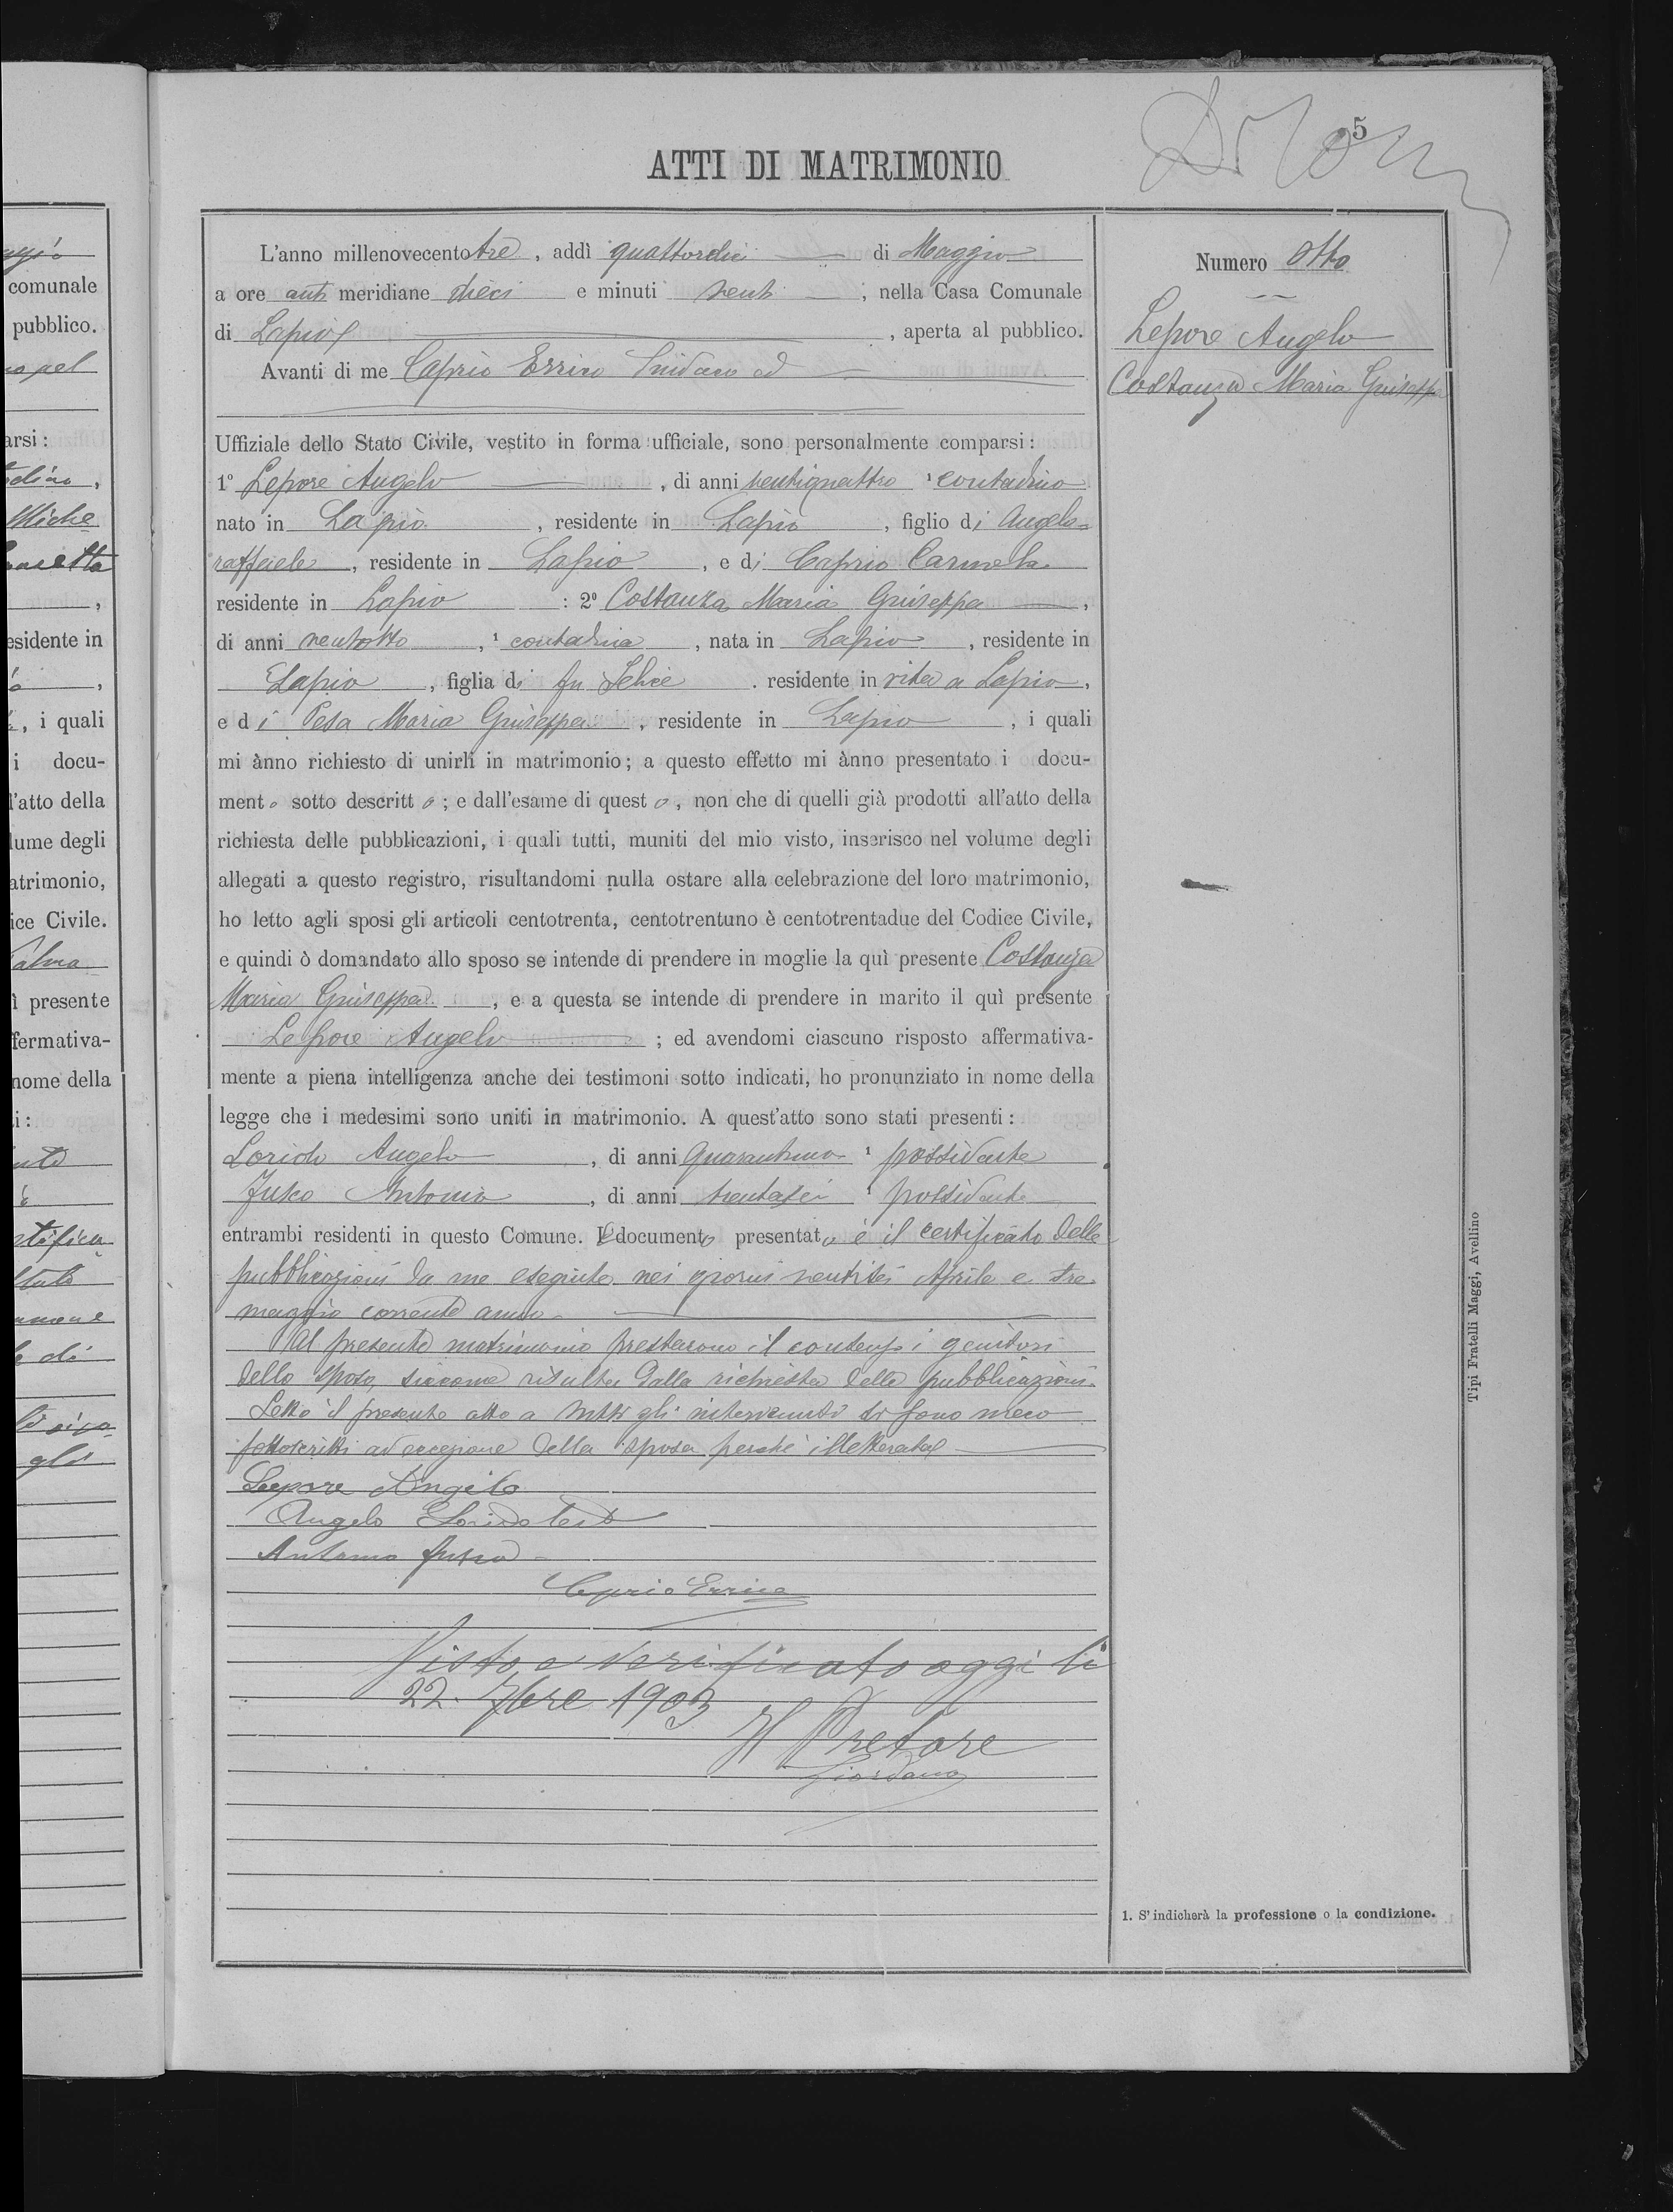 5
ATTI DI MATRIMONIO
Numero otto
Lepore Angelo
Costanza Maria Giuseppa
L'anno millenovecentotre, addì quattordici di Maggio
a ore anti meridiane dieci e minuti venti, nella Casa Comunale
di Lapio, aperta al pubblico.
Avanti di me Caprio Errico Sindaco ed
Uffiziale dello Stato Civile, vestito in forma ufficiale, sono personalmente comparsi:
1º Lepore Angelo, di anni ventiquattro ¹ contadino
nato in Lapio, residente in Lapio, figlio di Angelo-
raffaele, residente in Lapio, e di Caprio Carmela
residente in Lapio: 2º Costanza Maria Giuseppa,
di anni ventotto, ¹ contadina, nata in Lapio, residente in
Lapio, figlia di fu Felice. residente in vita a Lapio,
e di Pesa Maria Giuseppa, residente in Lapio, i quali
mi ànno richiesto di unirli in matrimonio; a questo effetto mi ànno presentato i docu-
mento sotto descritto; e dall'esame di questo, non che di quelli già prodotti all'atto della
richiesta delle pubblicazioni, i quali tutti, muniti del mio visto, inserisco nel volume degli
allegati a questo registro, risultandomi nulla ostare alla celebrazione del loro matrimonio,
ho letto agli sposi gli articoli centotrenta, centotrentuno è centotrentadue del Codice Civile,
e quindi ò domandato allo sposo se intende di prendere in moglie la quì presente Costanza
Maria Giuseppa, e a questa se intende di prendere in marito il quì presente
Lepore Angelo; ed avendomi ciascuno risposto affermativa-
mente a piena intelligenza anche dei testimoni sotto indicati, ho pronunziato in nome della
legge che i medesimi sono uniti in matrimonio. A quest'atto sono stati presenti:
Lorido Angelo, di anni quarantuno ¹ possidente
Fusco Antonio, di anni trentasei ¹ possidente
entrambi residenti in questo Comune. Il documento presentato è il certificato delle
pubblicazioni da me eseguite nei giorni ventisei Aprile e tre
maggio corrente anno.
Al presente matrimonio prestarono il consenso i genitori
dello sposo, siccome risulta dalla richiesta delle pubblicazioni.
Letto il presente atto a tutti gli intervenuti si sono meco
sottoscritti ad eccezione della sposa perchè illetterata
Lepore Angelo
Angelo Lorido test
Antonio Fusco
Caprio Errico
Visto e verificato oggi li
22. 7bre 1903
Il Pretore
Giordano
1. S'indicherà la professione o la condizione.
Tipi Fratelli Maggi, Avellino